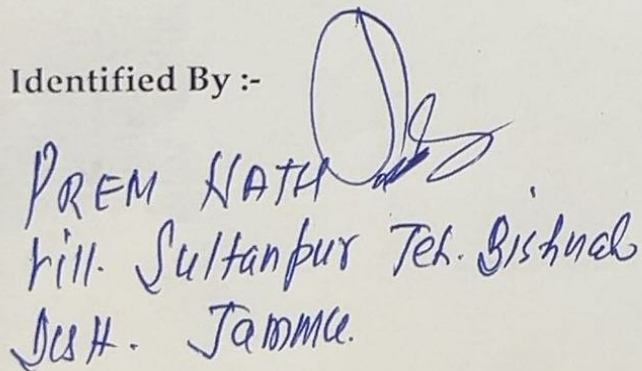 Identified By :-
PREM NATH
vill. Sultanpur Teh. Bishnah
Distt. Jammu.